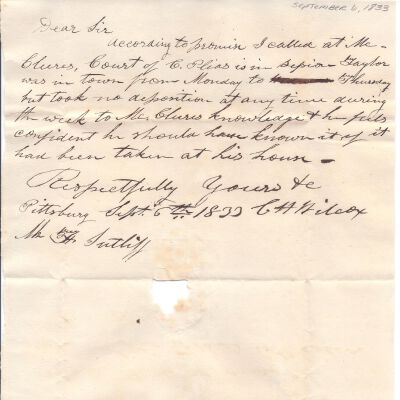 SEPTEMBER 6, 1833
Dear Sir
According to promise I called at Mc-
Clures, Court of C. Pleas is in Session Taylor
was in town from Monday to Thursday
but took no deposition at any time during
the week to Mc Clures knowledge & he feels
confident he should have known it if it
had been taken at his house –
Respectfully Yours &c
Pittsburg Sept. 6th 1833 C H Wilcox
Mr Sutliff